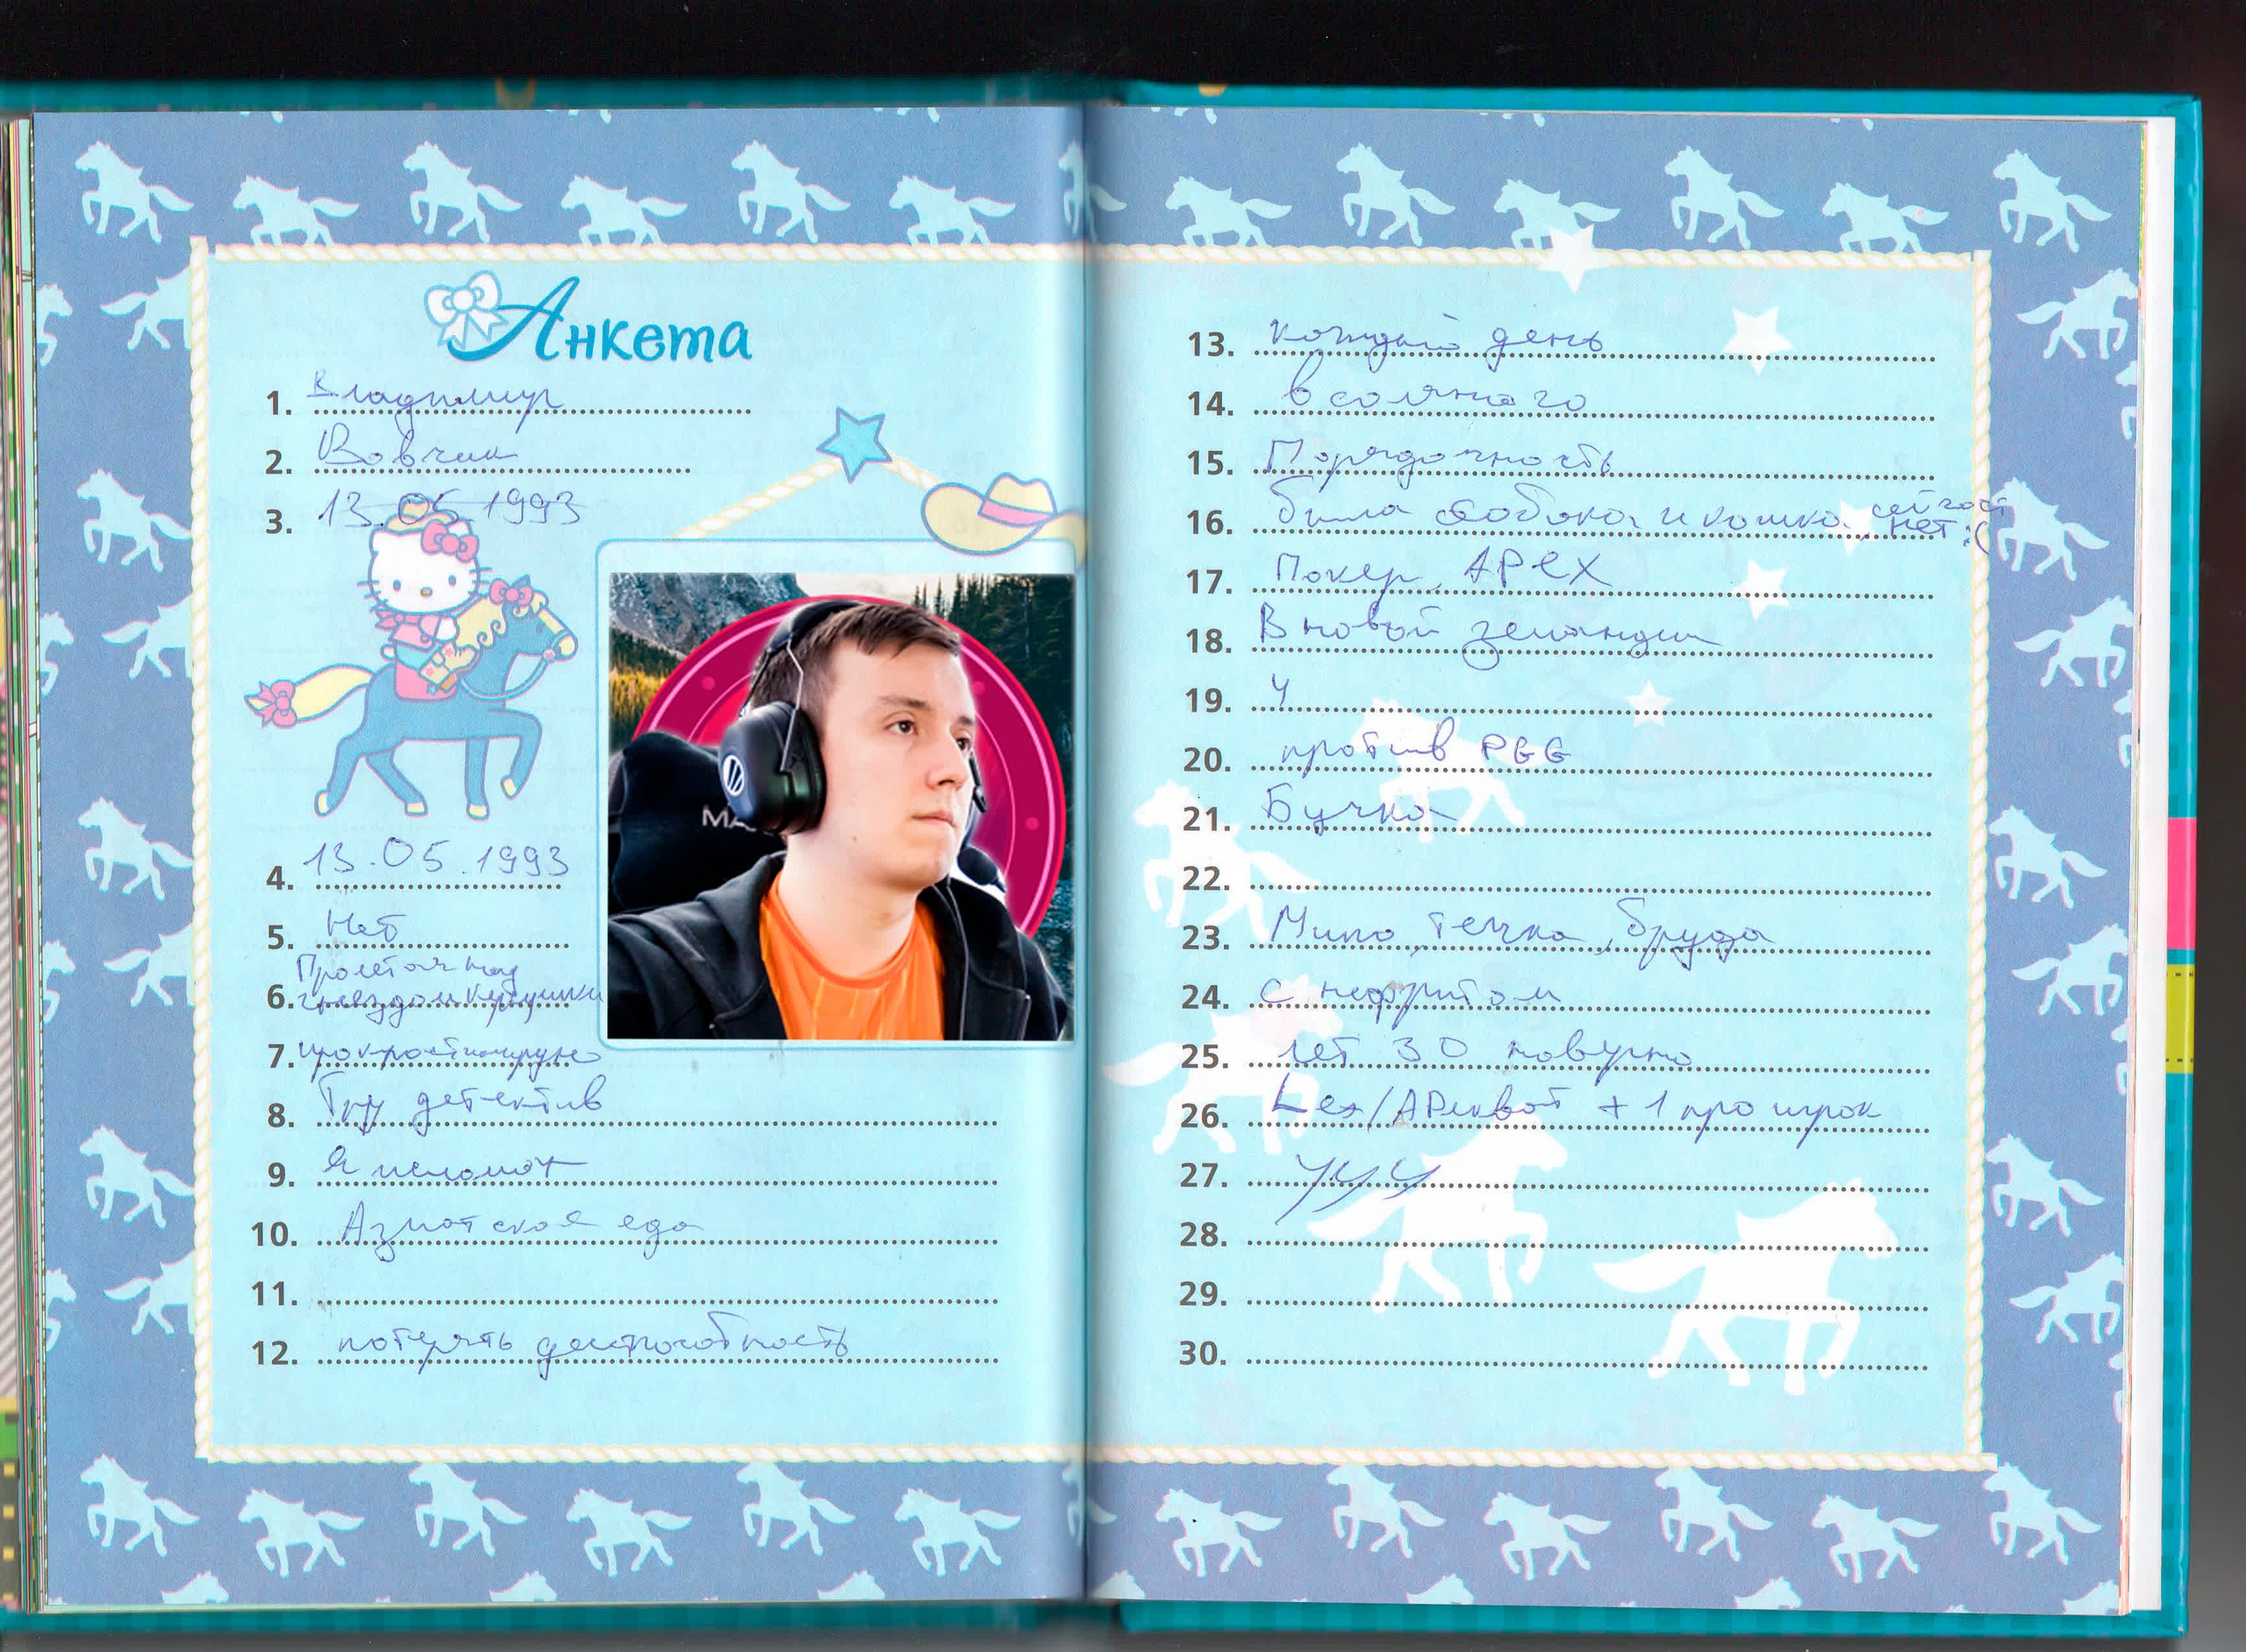 Анкета
1. Владимир
2. Вовчик
3. 13.05.1993
4. 13.05.1993
5. Нет
Пролетая над
6. гнездом кукушки
7. прокрастинирую
8. Тру детектив
9. Я иеломот
10. Азиатская еда
11.
12. потерять дееспособность
MA
13. каждый день
14. всолянаго
15. Порядочность
16. была собака и кошка сейчас
нет :(
17. Покер, APEX
18. В новой зеландии
19. 4
20. против PGG
21. Бучка
22.
23. Мипо, Течка, Бруда
24. с нефритом
25. лет 30 наверно
26. Lex/АРивот + 1 про игрок
27. УУУ
28.
29.
30.